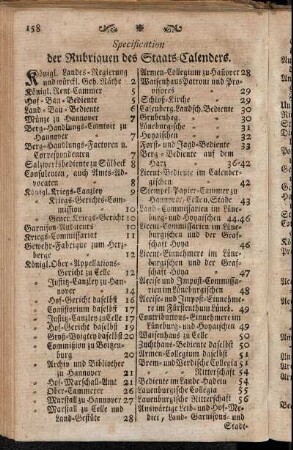 158
Specification
der Rubriquen des Staats-Calenders.
Königl. Landes-Regierung
und würckl. Geh. Räthe 2
Königl. Rent-Cammer 5
Hof-Bau-Bediente 6
Land-Bau-Bediente 6
Müntze zu Hannover 7
Berg-Handlungs-Comtoir zu
Hannover 7
Berg-Handlungs-Factoren u.
Correspondenten 7
Salzverfilberdiente zu Sülbeck 8
Consulenten, auch Amts-Ad-
vocaten 8
Königl. Kriegs-Cantzley 9
Kriegs-Gerichts-Com-
mission 10
Gener. Kriegs-Gericht 10
Garnison-Auditeurs 10
Kriegs-Commissariat 11
Gewehr-Fabrique zum Hertz-
berge 12
Königl. Ober-Appellations-
Gericht zu Celle 12
Justitz-Cantzley zu Han-
nover 14
Hof-Gericht daselbst 16
Consistorium daselbst 17
Justitz-Cantzley zu Celle 17
Hof-Gericht daselbst 19
Groß-Voigtey daselbst 20
Commission zu Boitzen-
burg 20
Archiv und Bibliothec
zu Hannover 21
Hof-Marschall-Amt 21
Ober-Cammerer 26
Marstall zu Hannover 27
Marstall zu Celle und
Land-Gestüte 28
Armen-Collegium zu Hañover 28
Waisenhaus Patroni und Pro-
visores 29
Schloß-Kirche 29
Calenberg. Landsch. Bediente 30
Grubenhag. 30
Lüneburgische 31
Hoyaischen 32
Forst- und Jagd-Bediente 33
Berg-Bediente auf dem
Harz 36-42
Licent-Bediente im Calenber-
gischen 42
Stempel-Papier-Cammer zu
Hannover, Celle u. Stade 43
Land-Commissarien im Lüne-
burg- und Hoyaischen 44-46
Licent-Commissarien im Lüne-
burgischen und der Graf-
schaft Hoya 46
Licent-Einnehmere im Lüne-
burgischen und der Graf-
schaft Hoya 47
Accise- und Impost-Commissa-
rien im Lüneburgischen 48
Accise- und Impost-Einneh-
mer im Fürstenthum Lüneb. 49
Contributions-Einnehmer im
Lüneburg- und Hoyaischen 49
Waisenhaus zu Celle 50
Zuchthaus-Bediente daselbst 50
Armen-Collegium daselbst 51
Brem- und Verdische Collegia 51
Ritterschaft 54
Bediente im Lande Hadeln 54
Lauenburgische Collegia 55
Lauenburgische Ritterschaft 56
Auswärtige Leib- und Hof-Me-
dici, Land- Garnisons- und
Stadt-